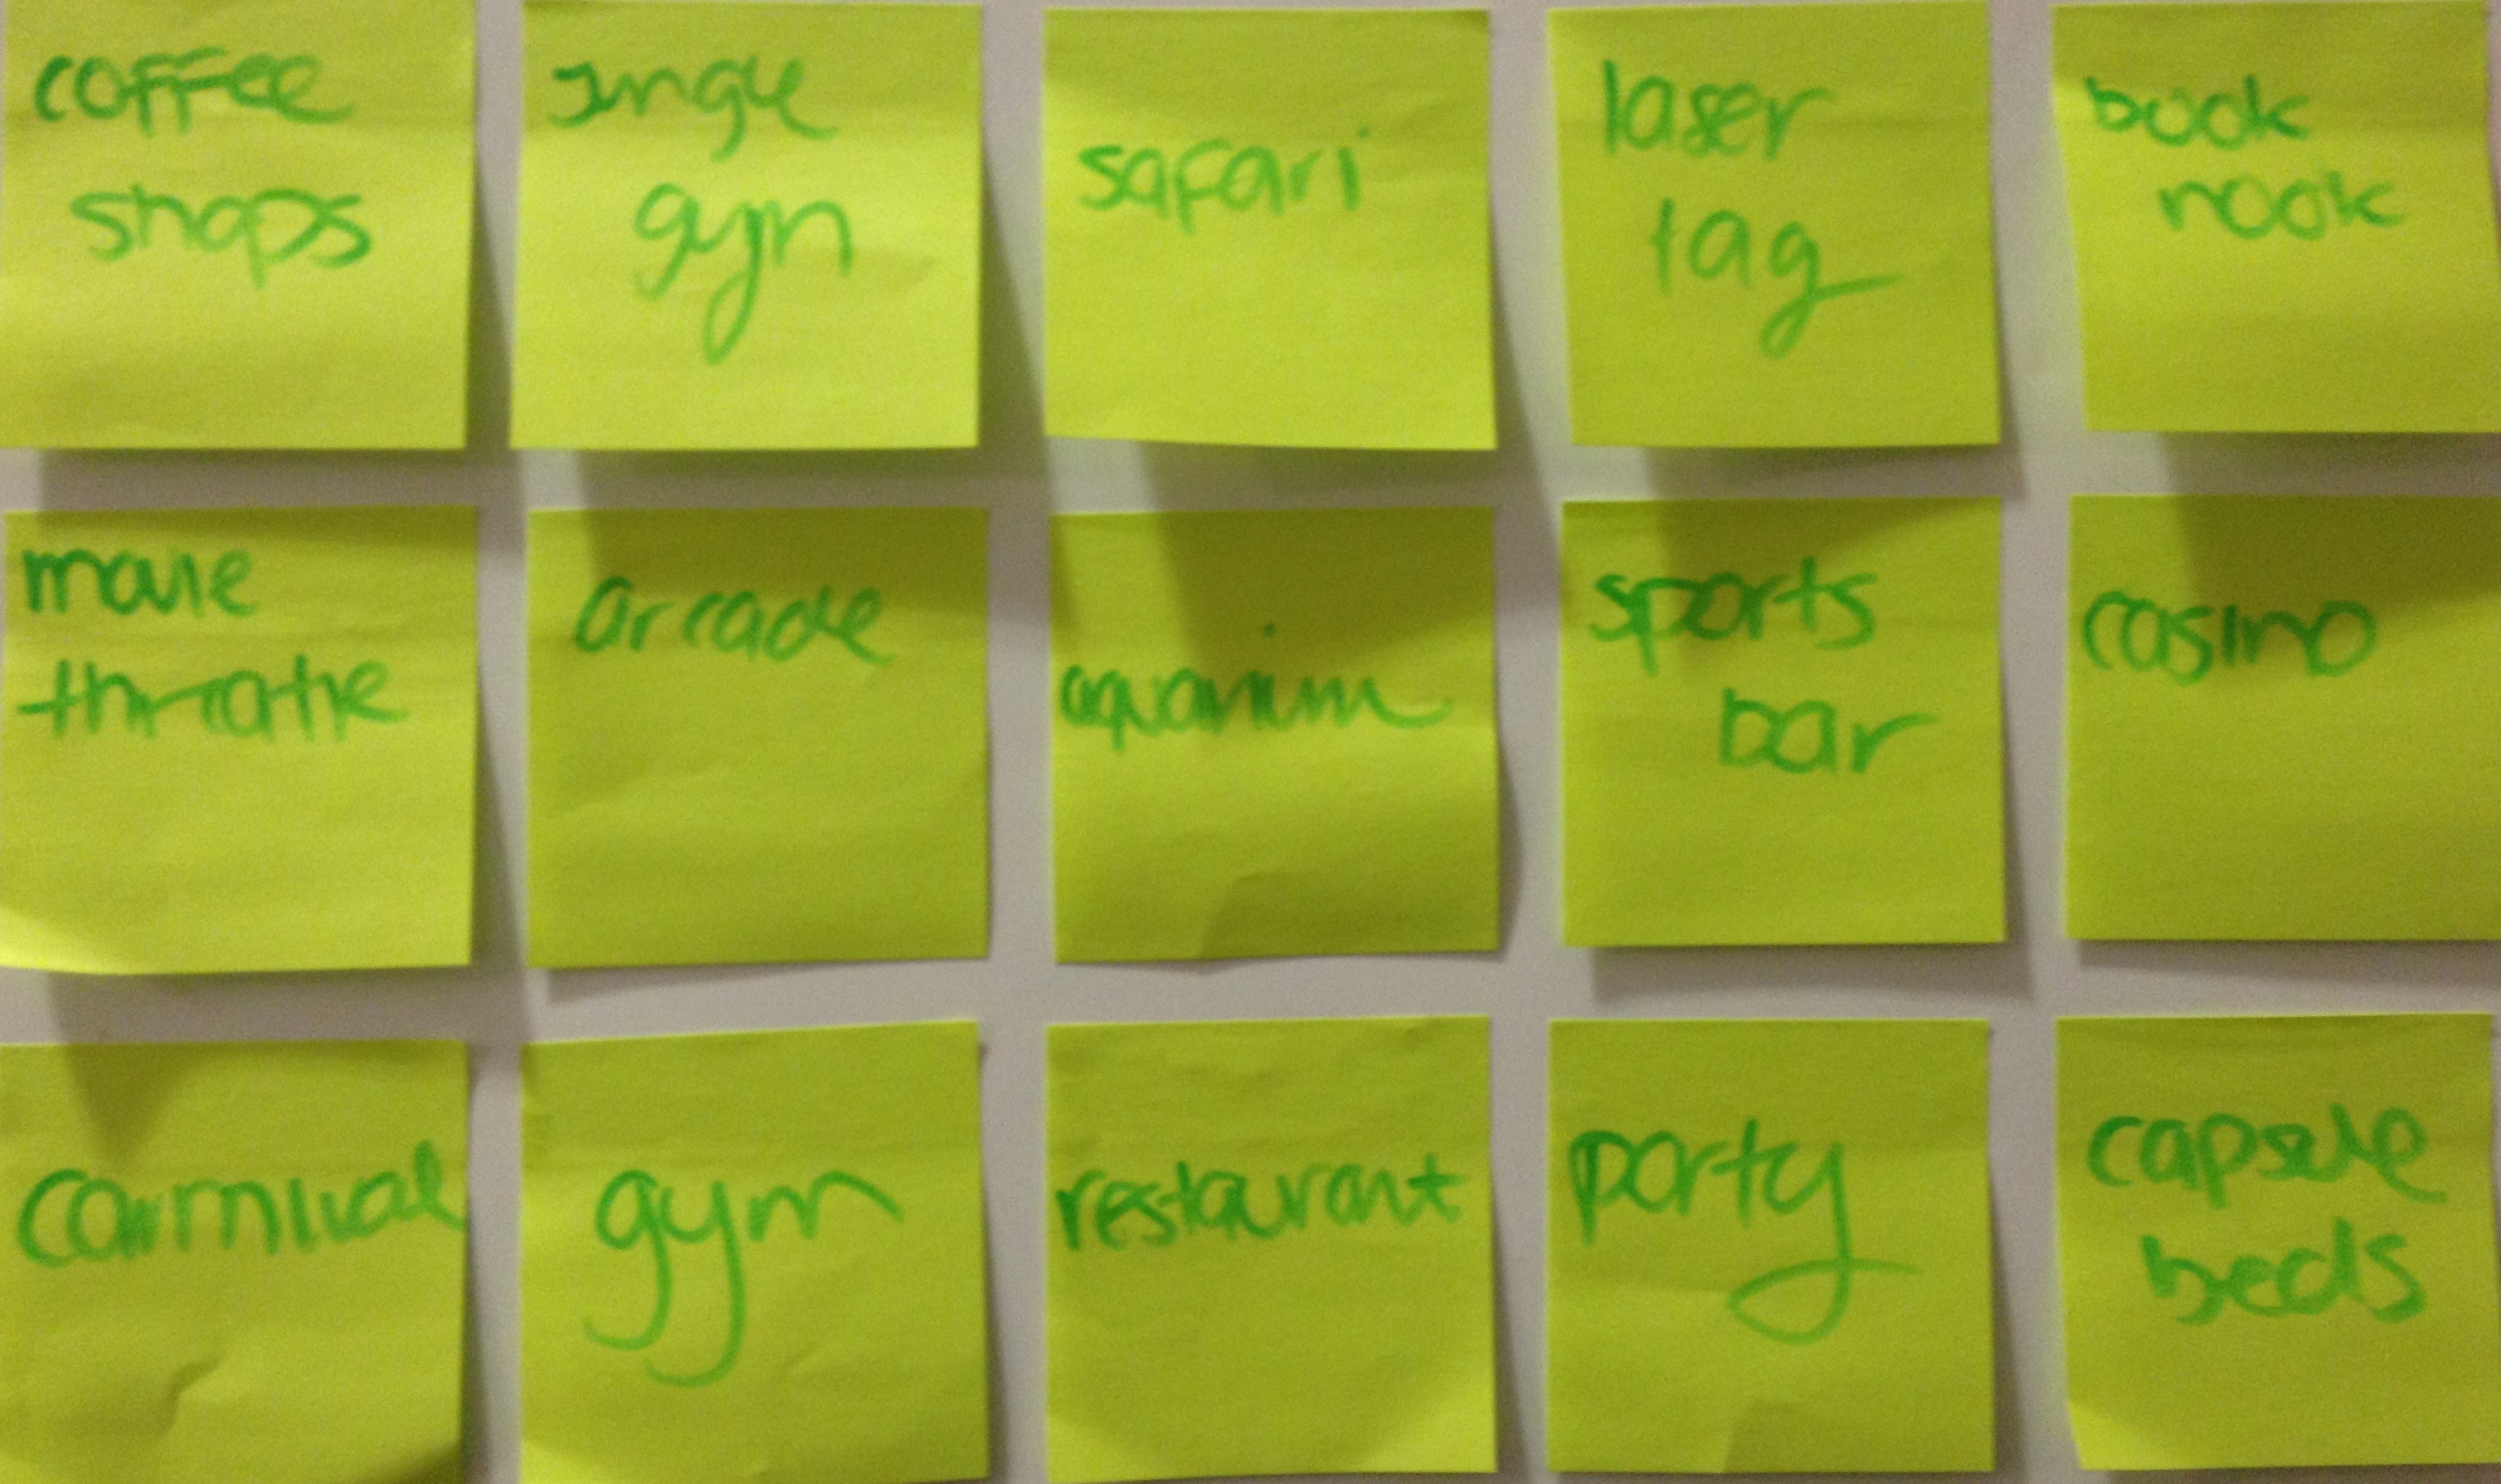 coffee
shops
Jungle
gym
safari
laser
tag
book
nook
movie
arcade
aquarium
sports
bar
casino
carnival
gym
restaurant
party
capsule
beds